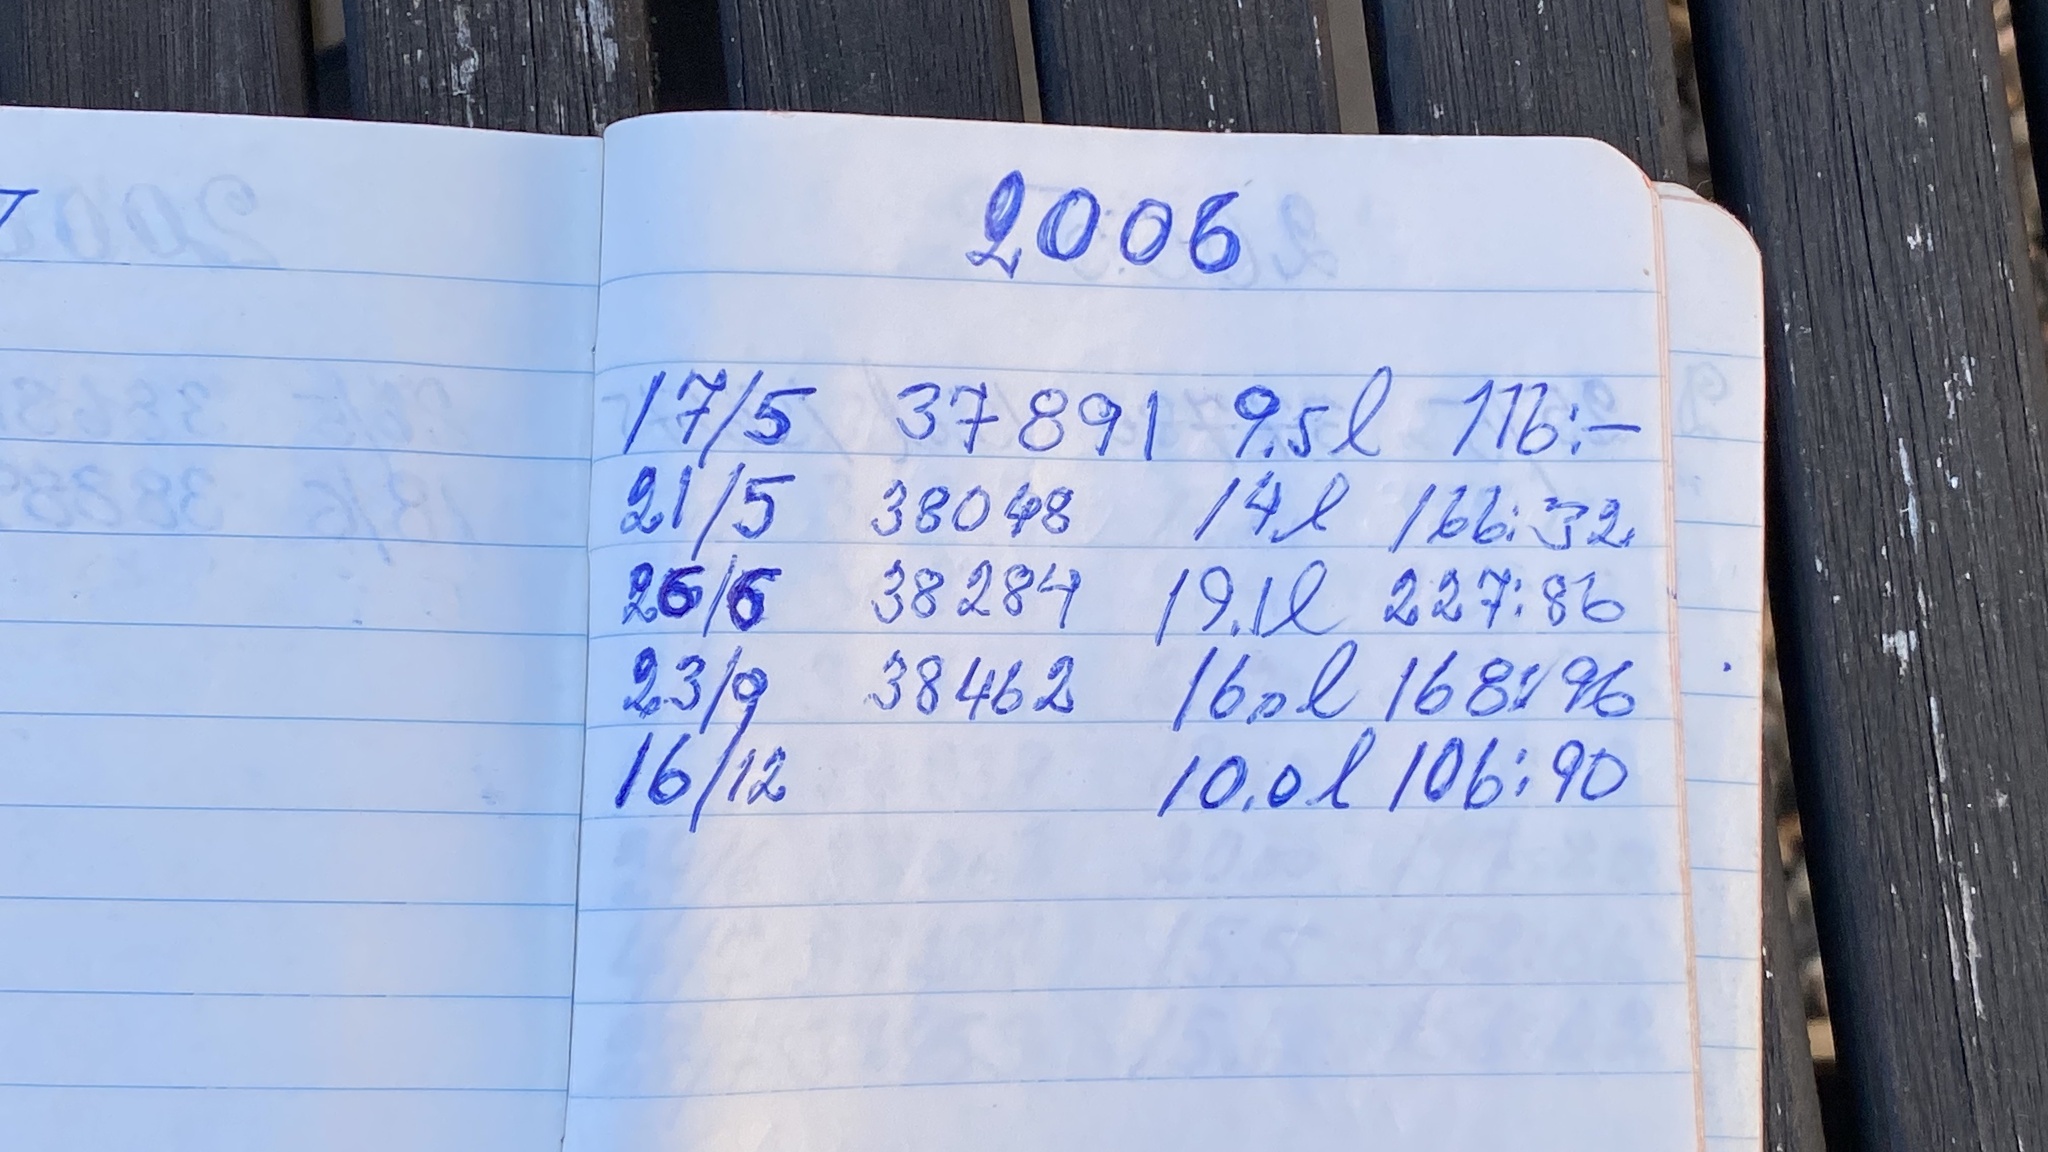 2006
17/5 37891 9.5l 116:-
21/5 38048 14l 166:32
26/6 38284 19.1l 227:86
23/9 38462 16.0l 168:96
16/12 10.0l 106:90